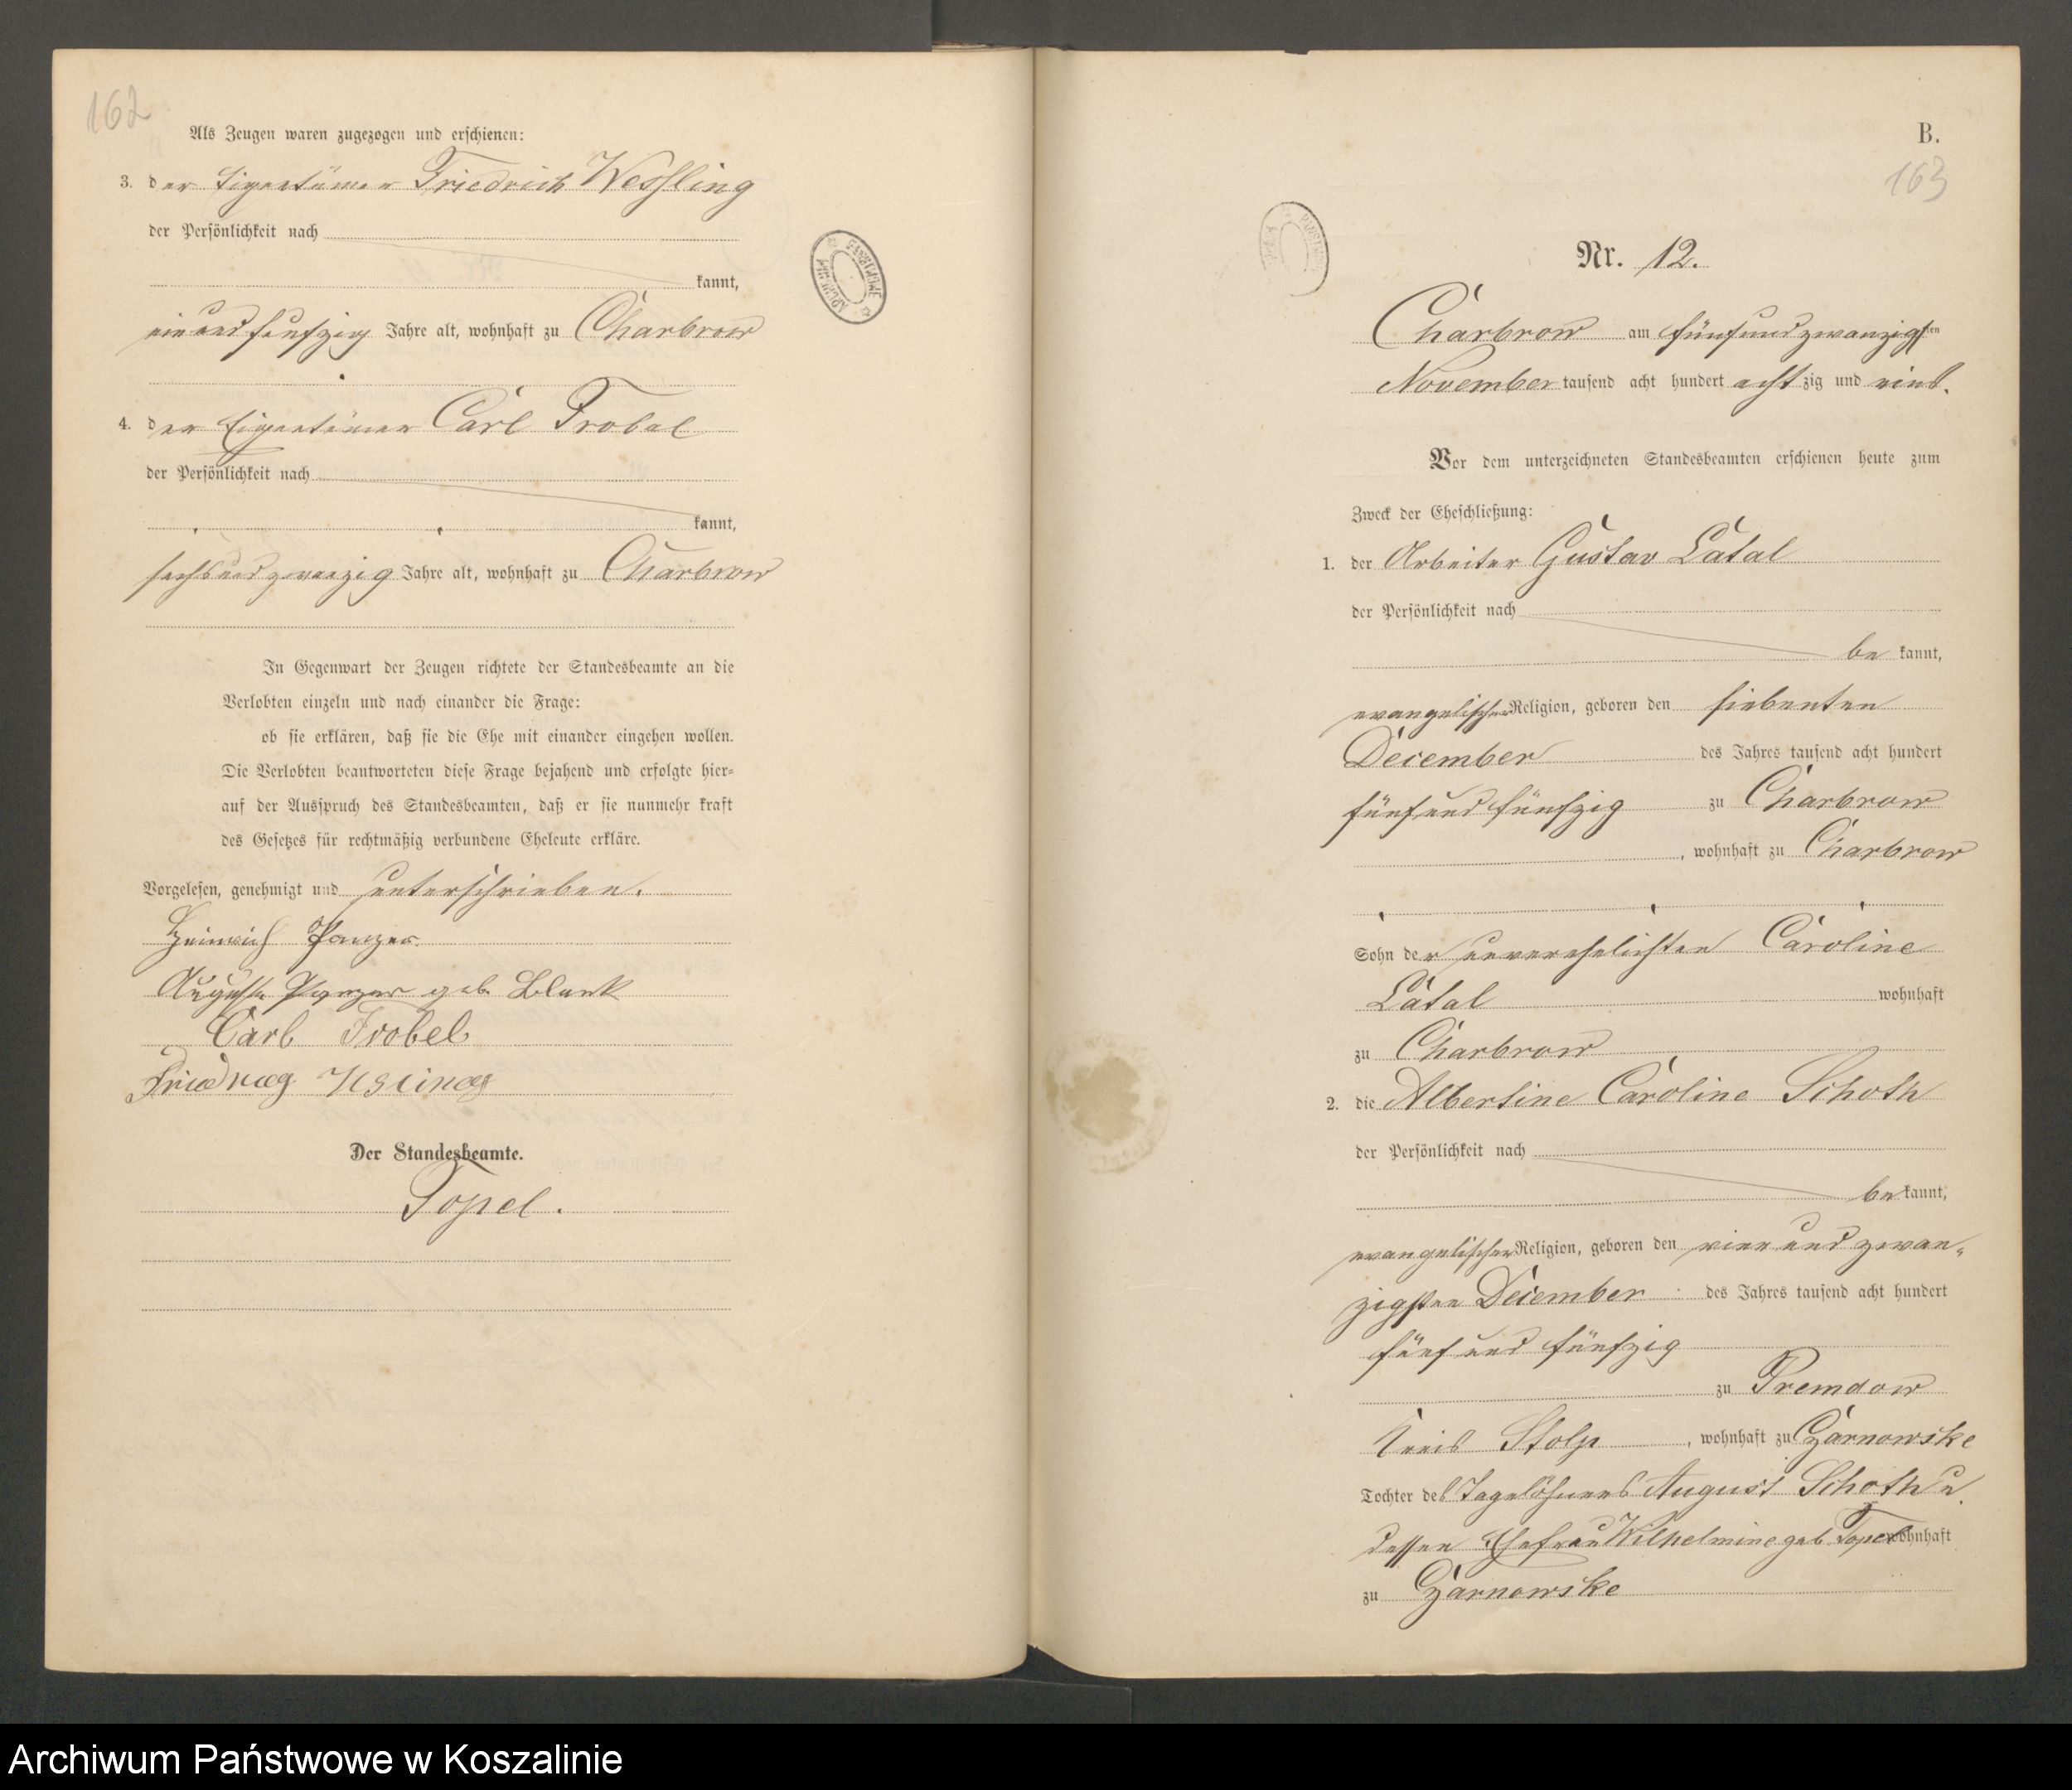 162
Als Zeugen waren zugezogen und erschienen:
3. der Eigentümer Friedrich Wessling
der Persönlichkeit nach
kannt,
ein und fünfzig Jahre alt, wohnhaft zu Charbrow
4. der Eigentümer Carl Frobel
der Persönlichkeit nach
kannt,
sechsundzwanzig Jahre alt, wohnhaft zu Charbrow
In Gegenwart der Zeugen richtete der Standesbeamte an die
Verlobten einzeln und nach einander die Frage:
ob sie erklären, daß sie die Ehe mit einander eingehen wollen.
Die Verlobten beantworteten diese Frage bejahend und erfolgte hier=
auf der Ausspruch des Standesbeamten, daß er sie nunmehr kraft
des Gesetzes für rechtmäßig verbundene Eheleute erkläre.
Vorgelesen, genehmigt und unterschrieben.
Heinrich Panzer
Auguste Panzer geb. Blank
Carl Frobel
Der Standesbeamte.
Topel.
B.
163
Nr. 12.
Charbrow am fünfundzwanzigsten
November tausend acht hundert achtzig und eins.
Vor dem unterzeichneten Standesbeamten erschienen heute zum
Zweck der Eheschließung:
1. der Arbeiter Gustav Latal
der Persönlichkeit nach
be kannt,
evangelischer Religion, geboren den siebenten
December des Jahres tausend acht hundert
fünf und fünfzig zu Charbrow
, wohnhaft zu Charbrow
Sohn der unverehelichten Caroline
Latal wohnhaft
zu Charbrow
2. die Albertine Caroline Schoth
der Persönlichkeit nach
be kannt,
evangelischer Religion, geboren den vier und zwan„
zigsten December des Jahres tausend acht hundert
fünf und fünfzig
zu Premdow
Kreis Stolp, wohnhaft zu Czarnowske
Tochter des Tagelöhners August Schoth u.
dessen Ehefrau Wilhelmine geb Topel wohnhaft
zu Czarnowske
Archiwum Państwowe w Koszalinie